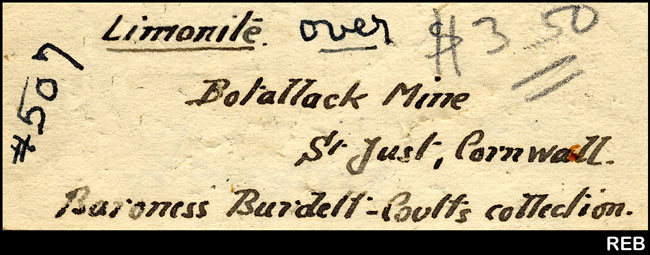 Limonite. over $3.50
#507
Botallack Mine
St Just, Cornwall.
Baroness Burdett-Coutts collection.
REB